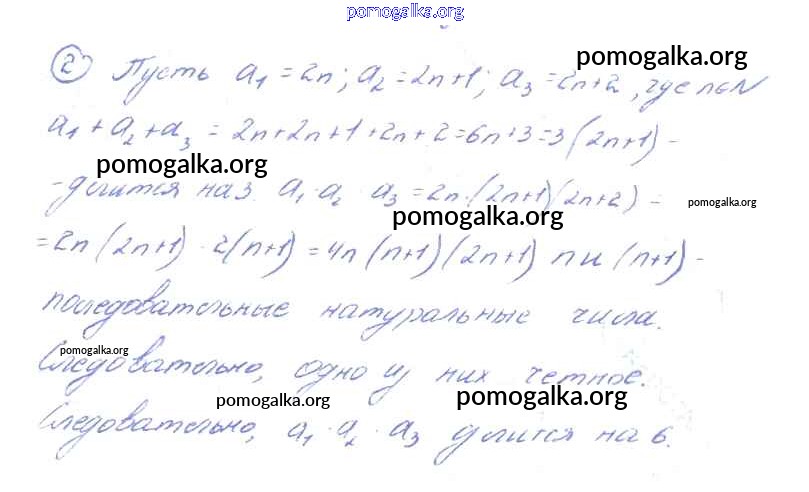 pomogalka.org
② Пусть a₁ = 2n; a₂ = 2n+1; a₃ = 2n+2, где n∈N
pomogalka.org
a₁ + a₂ + a₃ = 2n+2n+1+2n+2=6n+3=3(2n+1) -
pomogalka.org
- делится на 3. a₁ · a₂ · a₃ = 2n·(2n+1)(2n+2) =
pomogalka.org
pomogalka.org
= 2n(2n+1) · 2(n+1) = 4n(n+1)(2n+1) n и (n+1) -
последовательные натуральные числа.
pomogalka.org
Следовательно, одно из них четное.
pomogalka.org
pomogalka.org
Следовательно, a₁ · a₂ · a₃ делится на 6.